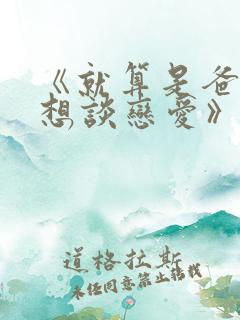 《就算是爸
想談戀愛》
道格拉斯
未经同意禁止转载